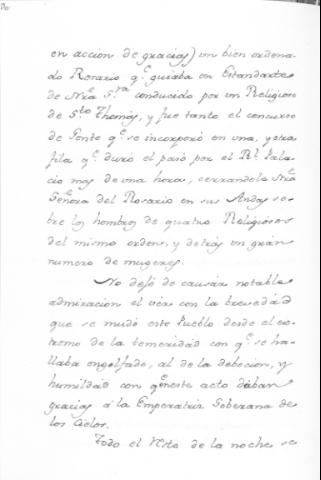 en accion de gracias) un bien ordena-
do Rosario q.e guiaba un Estandarte
de Ntra. S.ra conducido por un Religioso
de S.to Thomás, y fue tanto el concurso
de Gente q.e se incorporó en una, y otra
fila q.e duró el paso por el R.l Pala-
cio mas de una hora, cerrandola Ntra.
Señora del Rosario en sus Andas so-
bre los hombros de quatro Religiosos
del mismo orden, y detras un gran
numero de mugeres.
No dejó de causar notable
admiracion el ver con la brevedad
que se mudó este Pueblo desde el ex-
tremo de la temeridad con q.e se ha-
llaba engolfado, al de la debocion, y
humildad con q.e en este acto daban
gracias á la Emperatriz Soberana de
los Cielos.
Todo el resto de la noche se